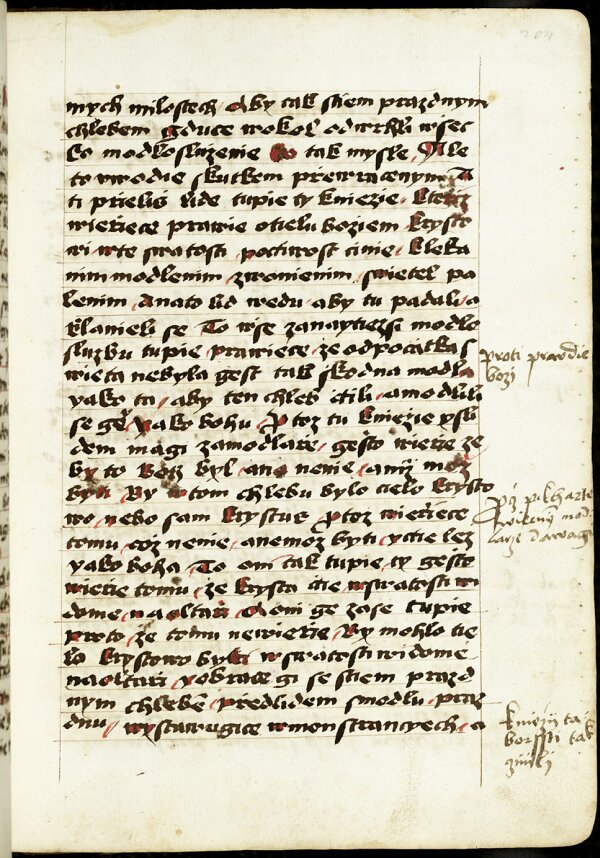 mych milostech Aby tak stiem prazdnym
chlebem gduce wokol odwrhli wsec
ko modlosluzenie tak mysle Ale
to wwodie skutkem przewracenym A
ti prielis lide tupie ty kniezie kteriz
wieriece prawie otielu boziem krysto
wi wte swatosti poctiwost cinie kleka
nim modlenim zwonienim swietel pa
lenim Anato lid wedu aby tu padali a
klanieli se To wse zanaytiezsi modlo
sluzbu tupie prawiece ze odpocatka s
wieta nebyla gest tak skodna modla
yako ta aby ten chleb ctili a modlili
se gemu yako bohu Protoz tu knieze
dem magi zamodlare gesto wierie ze
by to Boz byl ano nenie aniz moz
byti By wtom chlebu bylo tielo krysto
wo nebo sam krystus Protoz wieriece
tomu coz nenie anemoz byti yctie lez
yako boha To oni tak tupie ty gesto
wierie tomu ze krysta ctie wswatosti wi
dome naoltari A oni ge zase tupie
proto ze tomu newierie By mohlo tie
lo krystowo byti wswatosti widome
naoltari yobrace gi se stiem prazd
nym chlebem predlidem smodlu praz
dnu wystawugice wmonstrancyech a
proti prawdie
bozi
kniezij ta
borssti tak